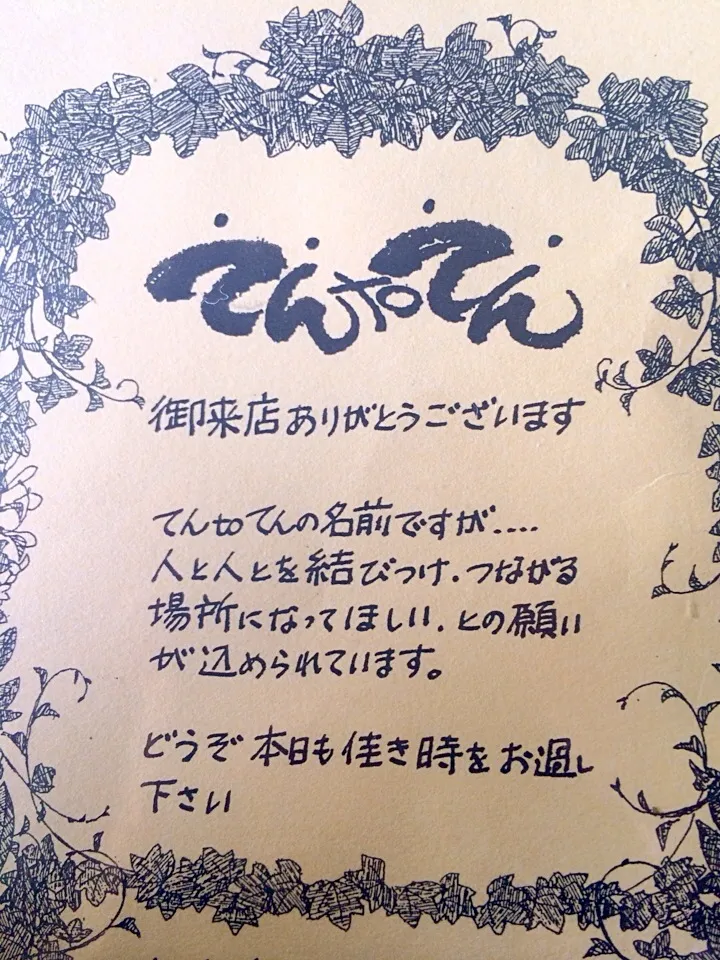 てんtoてん
御来店ありがとうございます
てんtoてんの名前ですが....
人と人とを結びつけ.つながる
場所になってほしい.との願い
が込められています。
どうぞ本日も佳き時をお過し
下さい